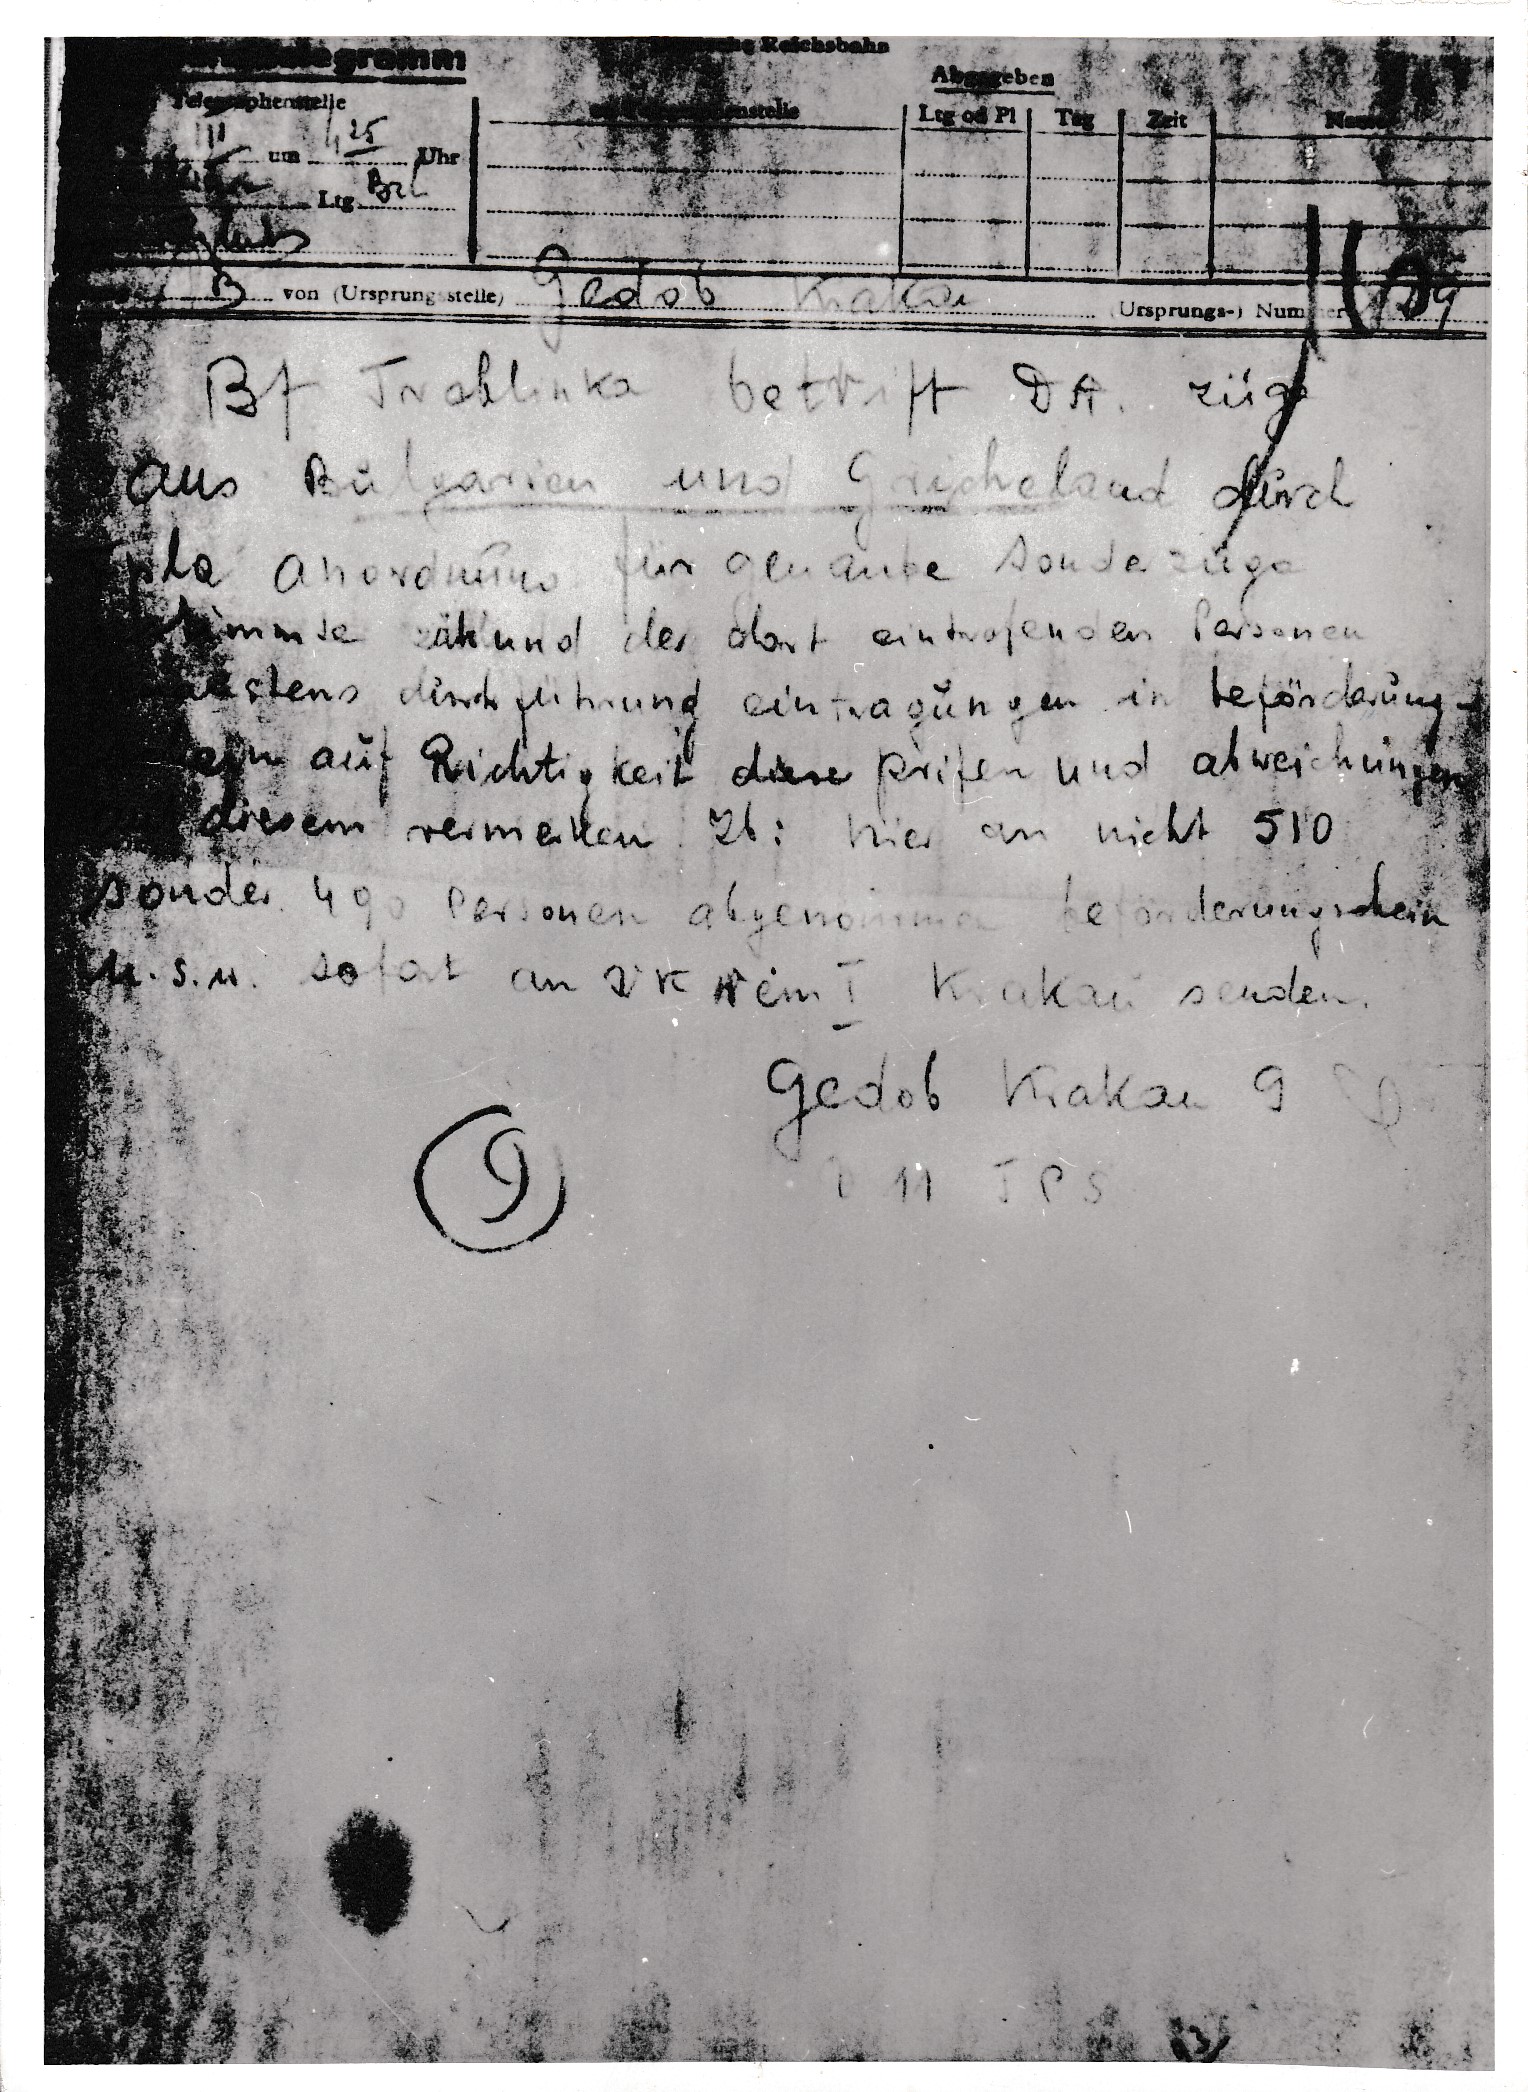 telegramm
Reichsbahn
Telegraphenstelle
Abgegeben
Ltg od Pl Tag Zeit
III um 4 25 Uhr
Ltg
B von (Ursprungsstelle) Gedob Krakau (Ursprungs-) Nummer
Bf Treblinka betrift DA. züge
aus Bulgarien und Gricheland durch
pla anordnung für genante Sonderzüge
timmte zählund der dort eintrofenden Personen
estens durchführung eintragüngen in beförderung-
ein auf Richtigkeit diese prüfen und abweichungen
diesem vermerken Zb: hier an nicht 510
sonder. 490 Personen abgenommen beförderungschein
u.s.w. sofort an I Krakau senden.
Gedob Krakau 9
9